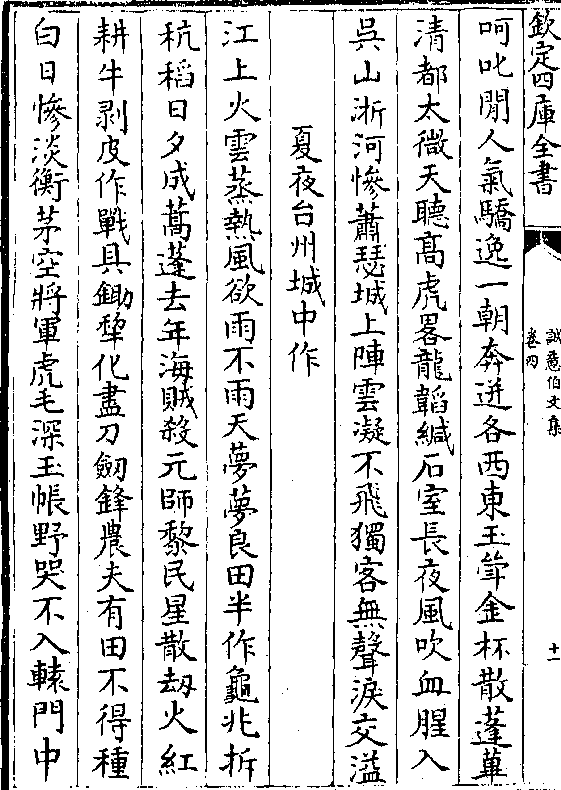 欽定四庫全書
誠意伯文集
卷四
十一
呵叱閒人氣驕逸一朝奔迸各西東玉斝金杯散蓬蓽
清都太微天聽髙虎畧龍韜緘石室長夜風吹血腥入
吳山浙河慘蕭瑟城上陣雲凝不飛獨客無聲淚交溢
夏夜台州城中作
江上火雲蒸熱風欲雨不雨天夢夢良田半作龜兆拆
秔稻日夕成蒿蓬去年海賊殺元師黎民星散刼火紅
耕牛剥皮作戰具鋤犂化盡刀劒鋒農夫有田不得種
白日慘淡衡茅空將軍虎毛深玉帳野哭不入轅門中